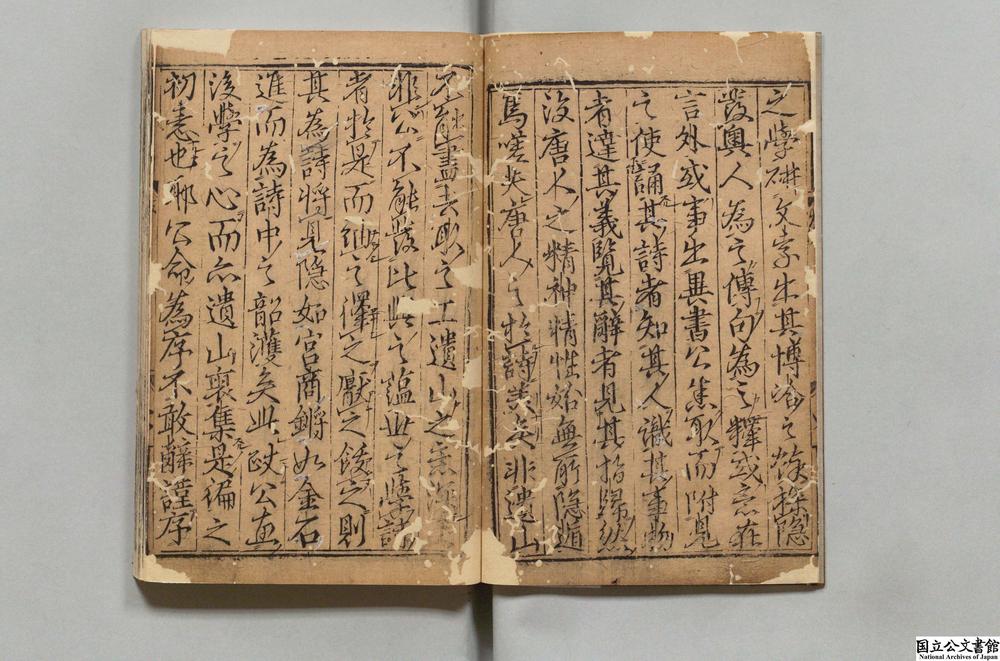 之學研文字出其博洽之餘探隱
發奧人為之傳句為之釋或意在
言外或事出異書公悉取而附見
之使誦其詩者知其人識其事物
者達其義覽其辭者見其指歸然
後唐人之精神情性始無所隱遁
焉嗟夫唐人之於詩美矣非遺山
不能盡去取之工遺山之意深
非公不能發比興之蘊世之學詩
者於是而紬之繹之厭之飫之則
其為詩將見隐如宫商鏘如金石
進而為詩中之韶濩矣此政公惠
後學之心而亦遺山裒集是編之
初意也耶公命為序不敢辭謹序
国立公文書館
National Archives of Japan